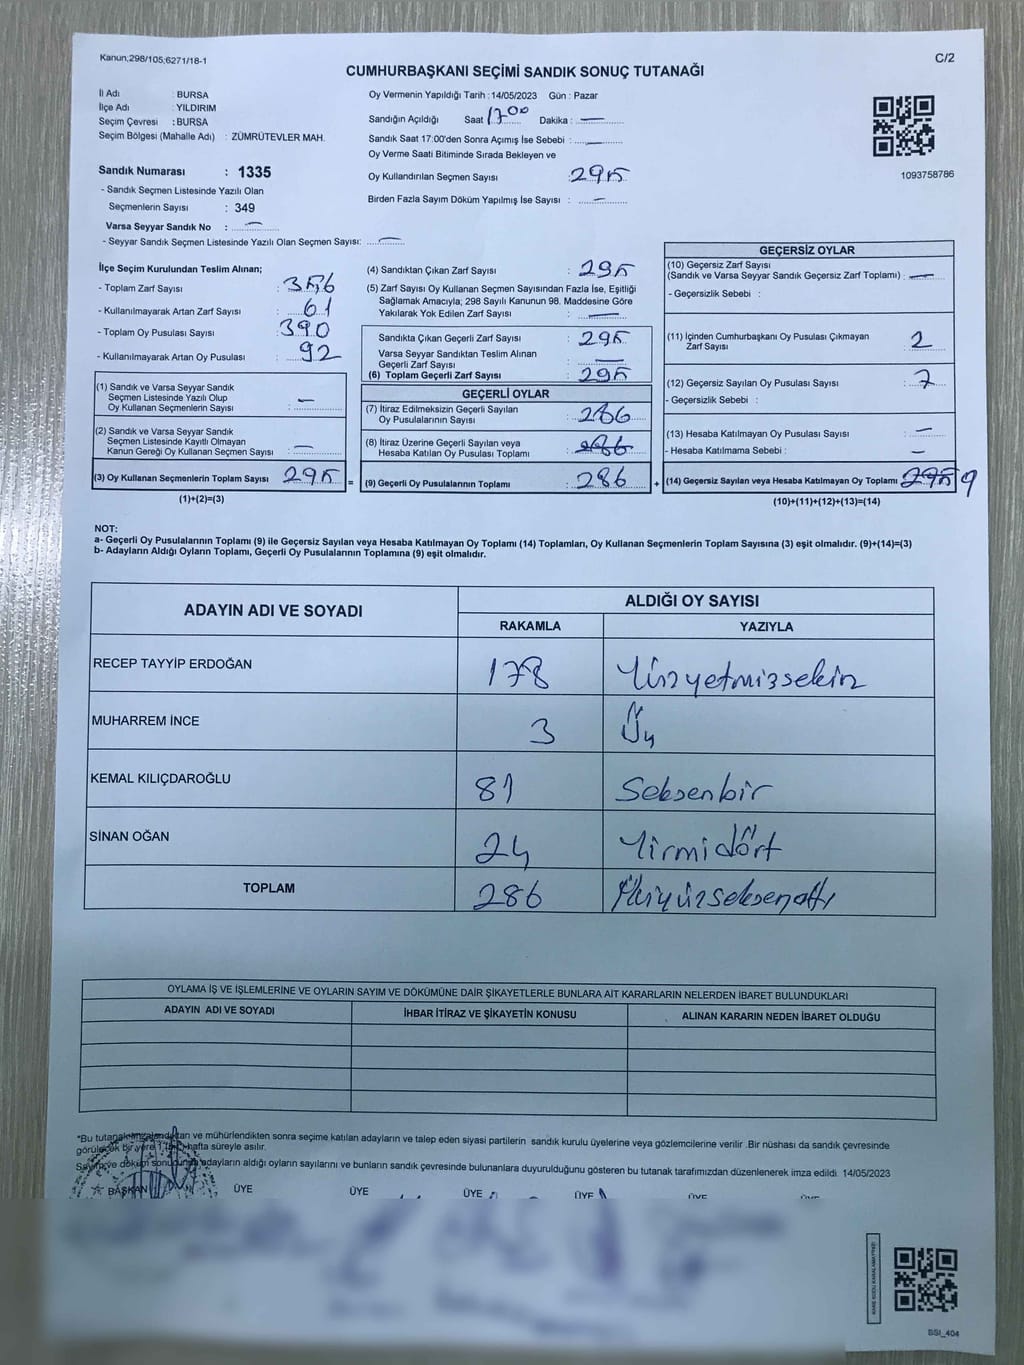 Kanun;298/105;6271/18-1
C/2
CUMHURBAŞKANI SEÇİMİ SANDIK SONUÇ TUTANAĞI
İl Adı : BURSA
İlçe Adı : YILDIRIM
Seçim Çevresi : BURSA
Seçim Bölgesi (Mahalle Adı) : ZÜMRÜTEVLER MAH.
Sandık Numarası : 1335
- Sandık Seçmen Listesinde Yazılı Olan
Seçmenlerin Sayısı : 349
Varsa Seyyar Sandık No : —
- Seyyar Sandık Seçmen Listesinde Yazılı Olan Seçmen Sayısı: —
Oy Vermenin Yapıldığı Tarih : 14/05/2023 Gün : Pazar
Sandığın Açıldığı Saat 17 00 Dakika : —
Sandık Saat 17:00'den Sonra Açımış İse Sebebi : —
Oy Verme Saati Bitiminde Sırada Bekleyen ve
Oy Kullandırılan Seçmen Sayısı : 295
Birden Fazla Sayım Döküm Yapılmış İse Sayısı : —
1093758786
İlçe Seçim Kurulundan Teslim Alınan;
- Toplam Zarf Sayısı : 356
- Kullanılmayarak Artan Zarf Sayısı : 61
- Toplam Oy Pusulası Sayısı : 390
- Kullanılmayarak Artan Oy Pusulası : 92
(1) Sandık ve Varsa Seyyar Sandık
Seçmen Listesinde Yazılı Olup
Oy Kullanan Seçmenlerin Sayısı : —
(2) Sandık ve Varsa Seyyar Sandık
Seçmen Listesinde Kayıtlı Olmayan
Kanun Gereği Oy Kullanan Seçmen Sayısı : —
(3) Oy Kullanan Seçmenlerin Toplam Sayısı : 295
(1)+(2)=(3)
(4) Sandıktan Çıkan Zarf Sayısı : 295
(5) Zarf Sayısı Oy Kullanan Seçmen Sayısından Fazla İse, Eşitliği
Sağlamak Amacıyla; 298 Sayılı Kanunun 98. Maddesine Göre
Yakılarak Yok Edilen Zarf Sayısı : —
Sandıkta Çıkan Geçerli Zarf Sayısı : 295
Varsa Seyyar Sandıktan Teslim Alınan
Geçerli Zarf Sayısı : —
(6) Toplam Geçerli Zarf Sayısı : 295
GEÇERLİ OYLAR
(7) İtiraz Edilmeksizin Geçerli Sayılan
Oy Pusulalarının Sayısı : 286
(8) İtiraz Üzerine Geçerli Sayılan veya
Hesaba Katılan Oy Pusulası Toplamı : 286
= (9) Geçerli Oy Pusulalarının Toplamı : 286
GEÇERSİZ OYLAR
(10) Geçersiz Zarf Sayısı
(Sandık ve Varsa Seyyar Sandık Geçersiz Zarf Toplamı) : —
- Geçersizlik Sebebi :
(11) İçinden Cumhurbaşkanı Oy Pusulası Çıkmayan
Zarf Sayısı : 2
(12) Geçersiz Sayılan Oy Pusulası Sayısı : 7
- Geçersizlik Sebebi :
(13) Hesaba Katılmayan Oy Pusulası Sayısı : —
- Hesaba Katılmama Sebebi : —
+ (14) Geçersiz Sayılan veya Hesaba Katılmayan Oy Toplamı : 295 9
(10)+(11)+(12)+(13)=(14)
NOT:
a- Geçerli Oy Pusulalarının Toplamı (9) ile Geçersiz Sayılan veya Hesaba Katılmayan Oy Toplamı (14) Toplamları, Oy Kullanan Seçmenlerin Toplam Sayısına (3) eşit olmalıdır. (9)+(14)=(3)
b- Adayların Aldığı Oyların Toplamı, Geçerli Oy Pusulalarının Toplamına (9) eşit olmalıdır.
ADAYIN ADI VE SOYADI
ALDIĞI OY SAYISI
RAKAMLA YAZIYLA
RECEP TAYYİP ERDOĞAN 178 Yüzyetmişsekiz
MUHARREM İNCE 3 Üç
KEMAL KILIÇDAROĞLU 81 Seksenbir
SİNAN OĞAN 24 Yirmidört
TOPLAM 286 İkiyüzseksenaltı
OYLAMA İŞ VE İŞLEMLERİNE VE OYLARIN SAYIM VE DÖKÜMÜNE DAİR ŞİKAYETLERLE BUNLARA AİT KARARLARIN NELERDEN İBARET BULUNDUKLARI
ADAYIN ADI VE SOYADI İHBAR İTİRAZ VE ŞİKAYETİN KONUSU ALINAN KARARIN NEDEN İBARET OLDUĞU
*Bu tutanak imzalandıktan ve mühürlendikten sonra seçime katılan adayların ve talep eden siyasi partilerin sandık kurulu üyelerine veya gözlemcilerine verilir. Bir nüshası da sandık çevresinde
görülecek bir yere 1 (bir) hafta süreyle asılır.
Sayım ve döküm sonucunda adayların aldığı oyların sayılarını ve bunların sandık çevresinde bulunanlara duyurulduğunu gösteren bu tutanak tarafımızdan düzenlenerek imza edildi. 14/05/2023
BAŞKAN ÜYE ÜYE ÜYE ÜYE ÜYE ÜYE
BSI_404